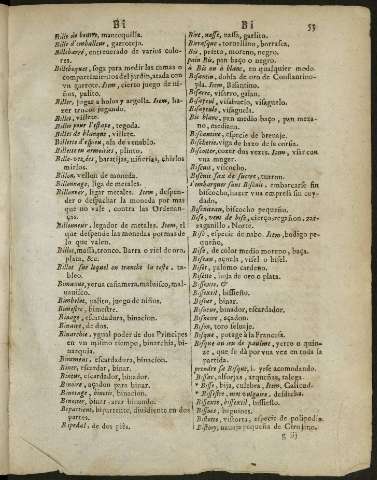 Bi
Bi
53
Bille de beurre, mantequilla.
Bille d'emballeur, garrotejo.
Billebarré, entreverado de varios colores.
Billebaquet, soga para medir las camas o
compartimientos del jardin, atada con
va garrote. Item, cierto juego de niños, palito.
Biller, jogar a bolos y argolla. Item, hazer trocos jugando.
Billet, villete.
Billet pour l'estape, tegoda.
Billet de blanque, villete.
Billettes d'espieu, ala de venablo.
Billette en armoiries, plinto.
Bille-vezées, baratijas, niñerias, chirlos mirlos.
Billon, vellon de moneda.
Billonnage, liga de metales.
Billonner, ligar metales. Item, despender o despachar la moneda por mas
que no vale, contra las Ordenanças.
Billonneur, legador de metales. Item, el
que despende las monedas por mas de
lo que valen.
Billot, massa, tronco. Barra o riel de oro,
plata, &c.
Billot sur lequel on tranche la teste, tableo.
Bimauve, yerua cañamera, malbisco, maluauisco.
Bimbelot, palito, juego de niños.
Bimestre, bimestre.
Binage, escardadura, binacion.
Binaire, de dos.
Binarchie, ygual poder de dos Principes
en vn mismo tiempo, binarchia, binarquia.
Binement, escardadura, binacion.
Biner, escardar, binar.
Bineur, escardador, binador.
Binoire, açadon para binar.
Binotage, binotis, binacion.
Binoter, arar binando.
Bipartient, bipartiente, dividiente en dos partes.
Bipedal, de dos piés.
Bire, nasse, nassa, garlito.
Birrasque, torbellino, borrasca.
Bis, prieto, moreno, negro.
pain Bis, pan baço o negro.
à Bis ou à blanc, en qualquier modo.
Bisantin, dobla de oro de Constantinopla. Item, Bizantino.
Bisarre, vizarro, galan.
Bisayeul, visabuelo, visaguelo.
Bisayeule, visaguela.
Bis blanc, pan medio baço, pan mezano, mediana.
Biscantine, especie de brevaje.
Bischeire, viga de baxo de la coriza.
Biscotter, cozer dos vezes. Item, vsar con
vna muger.
Biscuit, viscocho.
Biscuit sec de sucre, turron.
s'embarquer sans Biscuit, embarcarse sin
biscocho, hazer vna empresa sin cuydado.
Biscuiteau, biscocho pequeño.
Bise, vent de bise, cierço, regañon, zarzaganillo, Norte.
Bise, especie de nabo. Item, bodigo pequeño.
Bise, de color medio moreno, baça.
Biseau, açuela, visel o bisel.
Biset, palomo cardeno.
Bisette, hoja de oro o plata.
Bisexte, &
Bisextil, bissiesto.
Bisher, binar.
Bisneur, binador, escardador.
Bisnoire, açadon.
Bison, toro seluaje.
Bisque, potage à la Francesa.
Bisque ou jeu de paulme, yerro o quinze, que se dà por vna vez en toda la
partida.
prendre sa Bisque, id. yrse acomodando.
Bissac, alforjas, arquenas, talega.
* Bisse, bija, culebra, Item, Calicud.
* Bissestre, mot vulgaire, desdicha.
Bissexte, bissextil, bissiesto.
Bissac, biquines.
Bistorte, vistorta, especie de polipodio.
Bistory, nauaja pequeña de Cirujano.
g iij